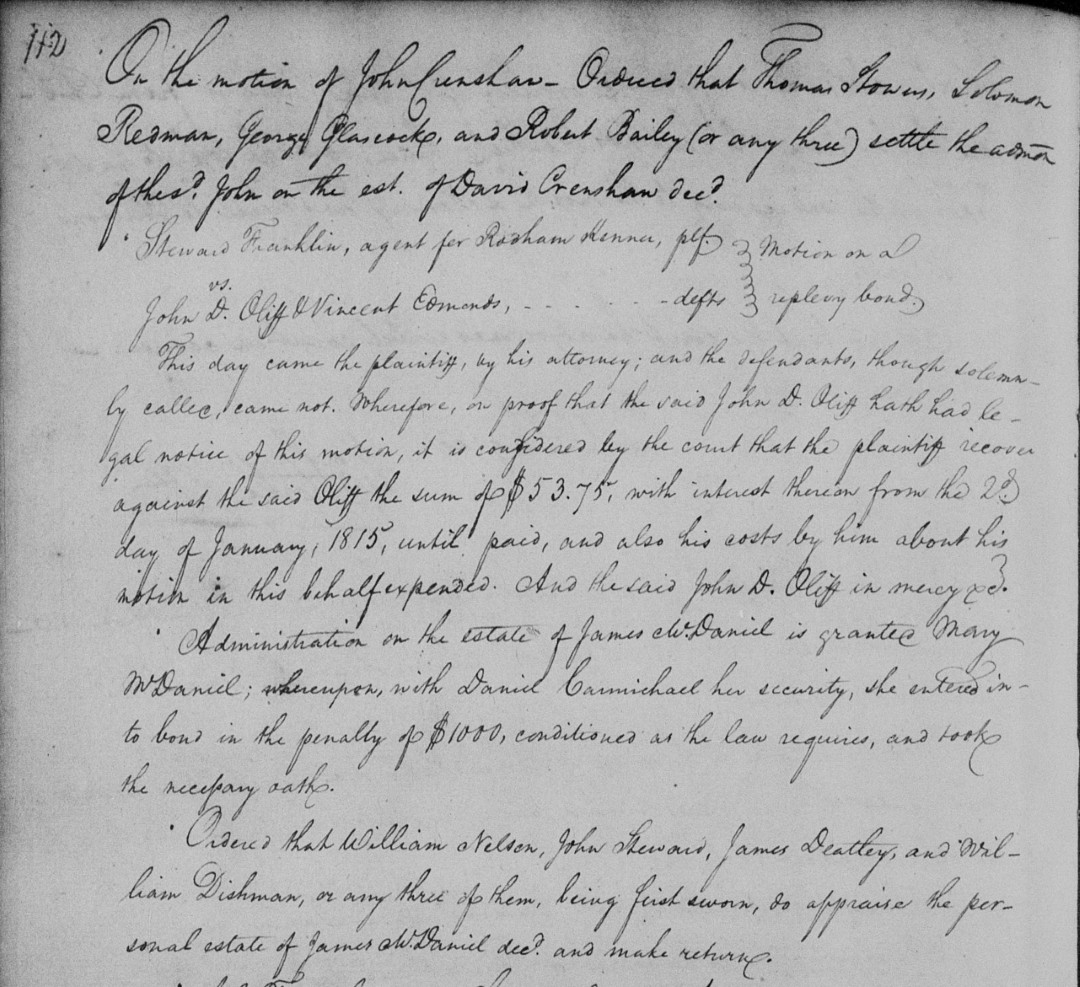 112
On the motion of John Crenshaw - Ordered that Thomas Stowers, Solomon
Redman, George Glascock, and Robert Bailey (or any three) settle the admon
of the sd. John on the est. of David Crenshaw decd.
Steward Franklin, agent for Rodham Kenner, plf. } Motion on a
vs.
John D. Oliff & Vincent Edmonds, - - - - - - defts } replevy bond.
This day came the plaintiff, by his attorney; and the defendants, though solemn-
ly called, came not. Wherefore, on proof that the said John D. Oliff hath had le-
gal notice of this motion, it is considered by the court that the plaintiff recover
against the said Oliff the sum of $53.75, with interest thereon from the 2d.
day of January, 1815, until paid, and also his costs by him about his
motion in this behalf expended. And the said John D. Oliff in mercy &c.
Administration on the estate of James McDaniel is granted Mary
McDaniel; whereupon, with Daniel Carmichael her security, she entered in-
to bond in the penalty of $1000, conditioned as the law requires, and took
the necessary oath.
Ordered that William Nelson, John Steward, James Deatley, and Wil-
liam Dishman, or any three of them, being first sworn, do appraise the per-
sonal estate of James McDaniel decd. and make return.